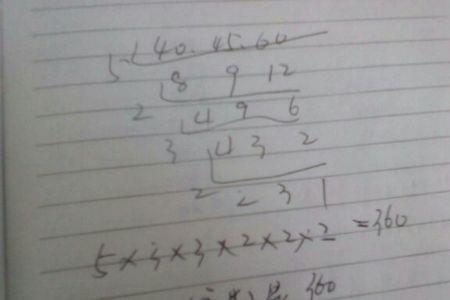 5 40. 45. 60
8 9 12
2 4 9 6
3 4 3 2
2 2 3 1
5×3×3×2×2×2=360
360